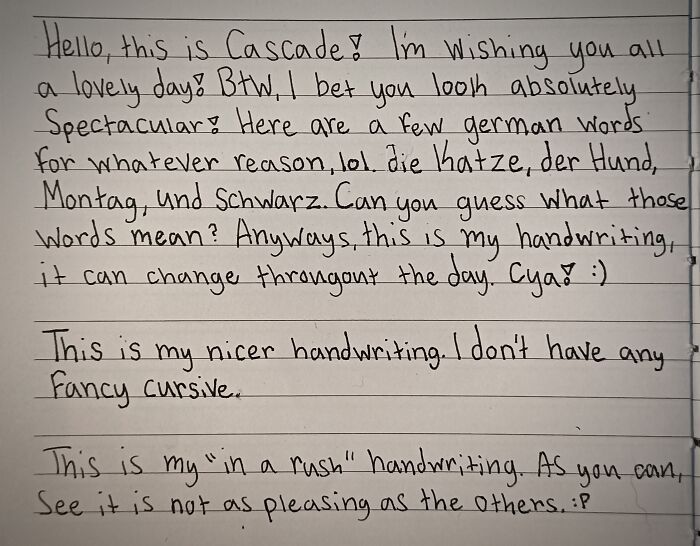 Hello, this is Cascade! I'm wishing you all
a lovely day! BtW, I bet you look absolutely
Spectacular! Here are a few german words
for whatever reason, lol. die Katze, der Hund,
Montag, und Schwarz. Can you guess what those
words mean? Anyways, this is my handwriting,
it can change througout the day. Cya! :)
This is my nicer handwriting. I don't have any
Fancy cursive.
This is my "in a rush" handwriting. As you can,
See it is not as pleasing as the others. :P